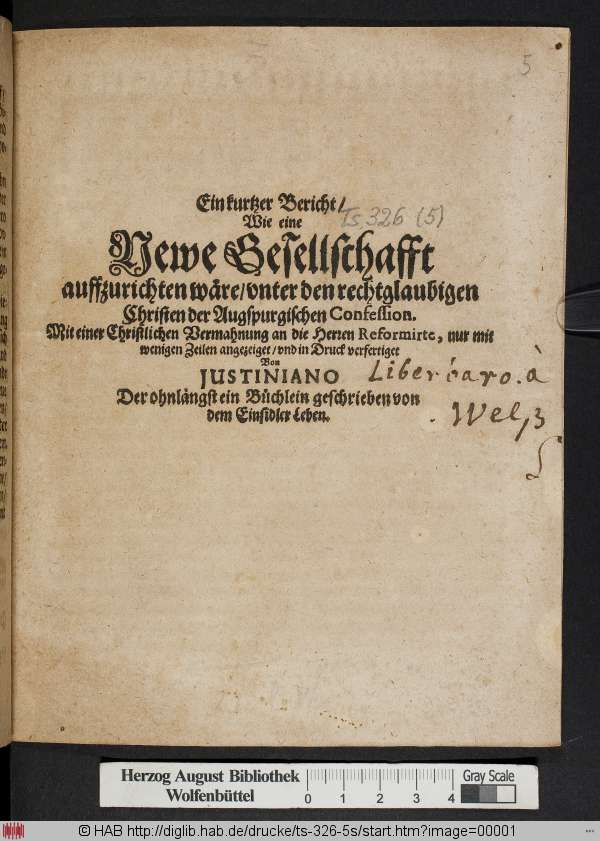 5
Ein kurtzer Bericht/
Ts 326 (5)
Wie eine
Newe Gesellschafft
auffzurichten wäre/vnter den rechtglaubigen
Christen der Augspurgischen Confession.
Mit einer Christlichen Vermahnung an die Herren Reformirte, nur mit
wenigen Zeilen angezeiget/vnd in Druck verfertiget
Von
JUSTINIANO
Liber baro. à
Der ohnlängst ein Büchlein geschrieben von
Welß
dem Einsidler Leben.
Herzog August Bibliothek
Wolfenbüttel
0 1 2 3 4
Gray Scale
© HAB http://diglib.hab.de/drucke/ts-326-5s/start.htm?image=00001